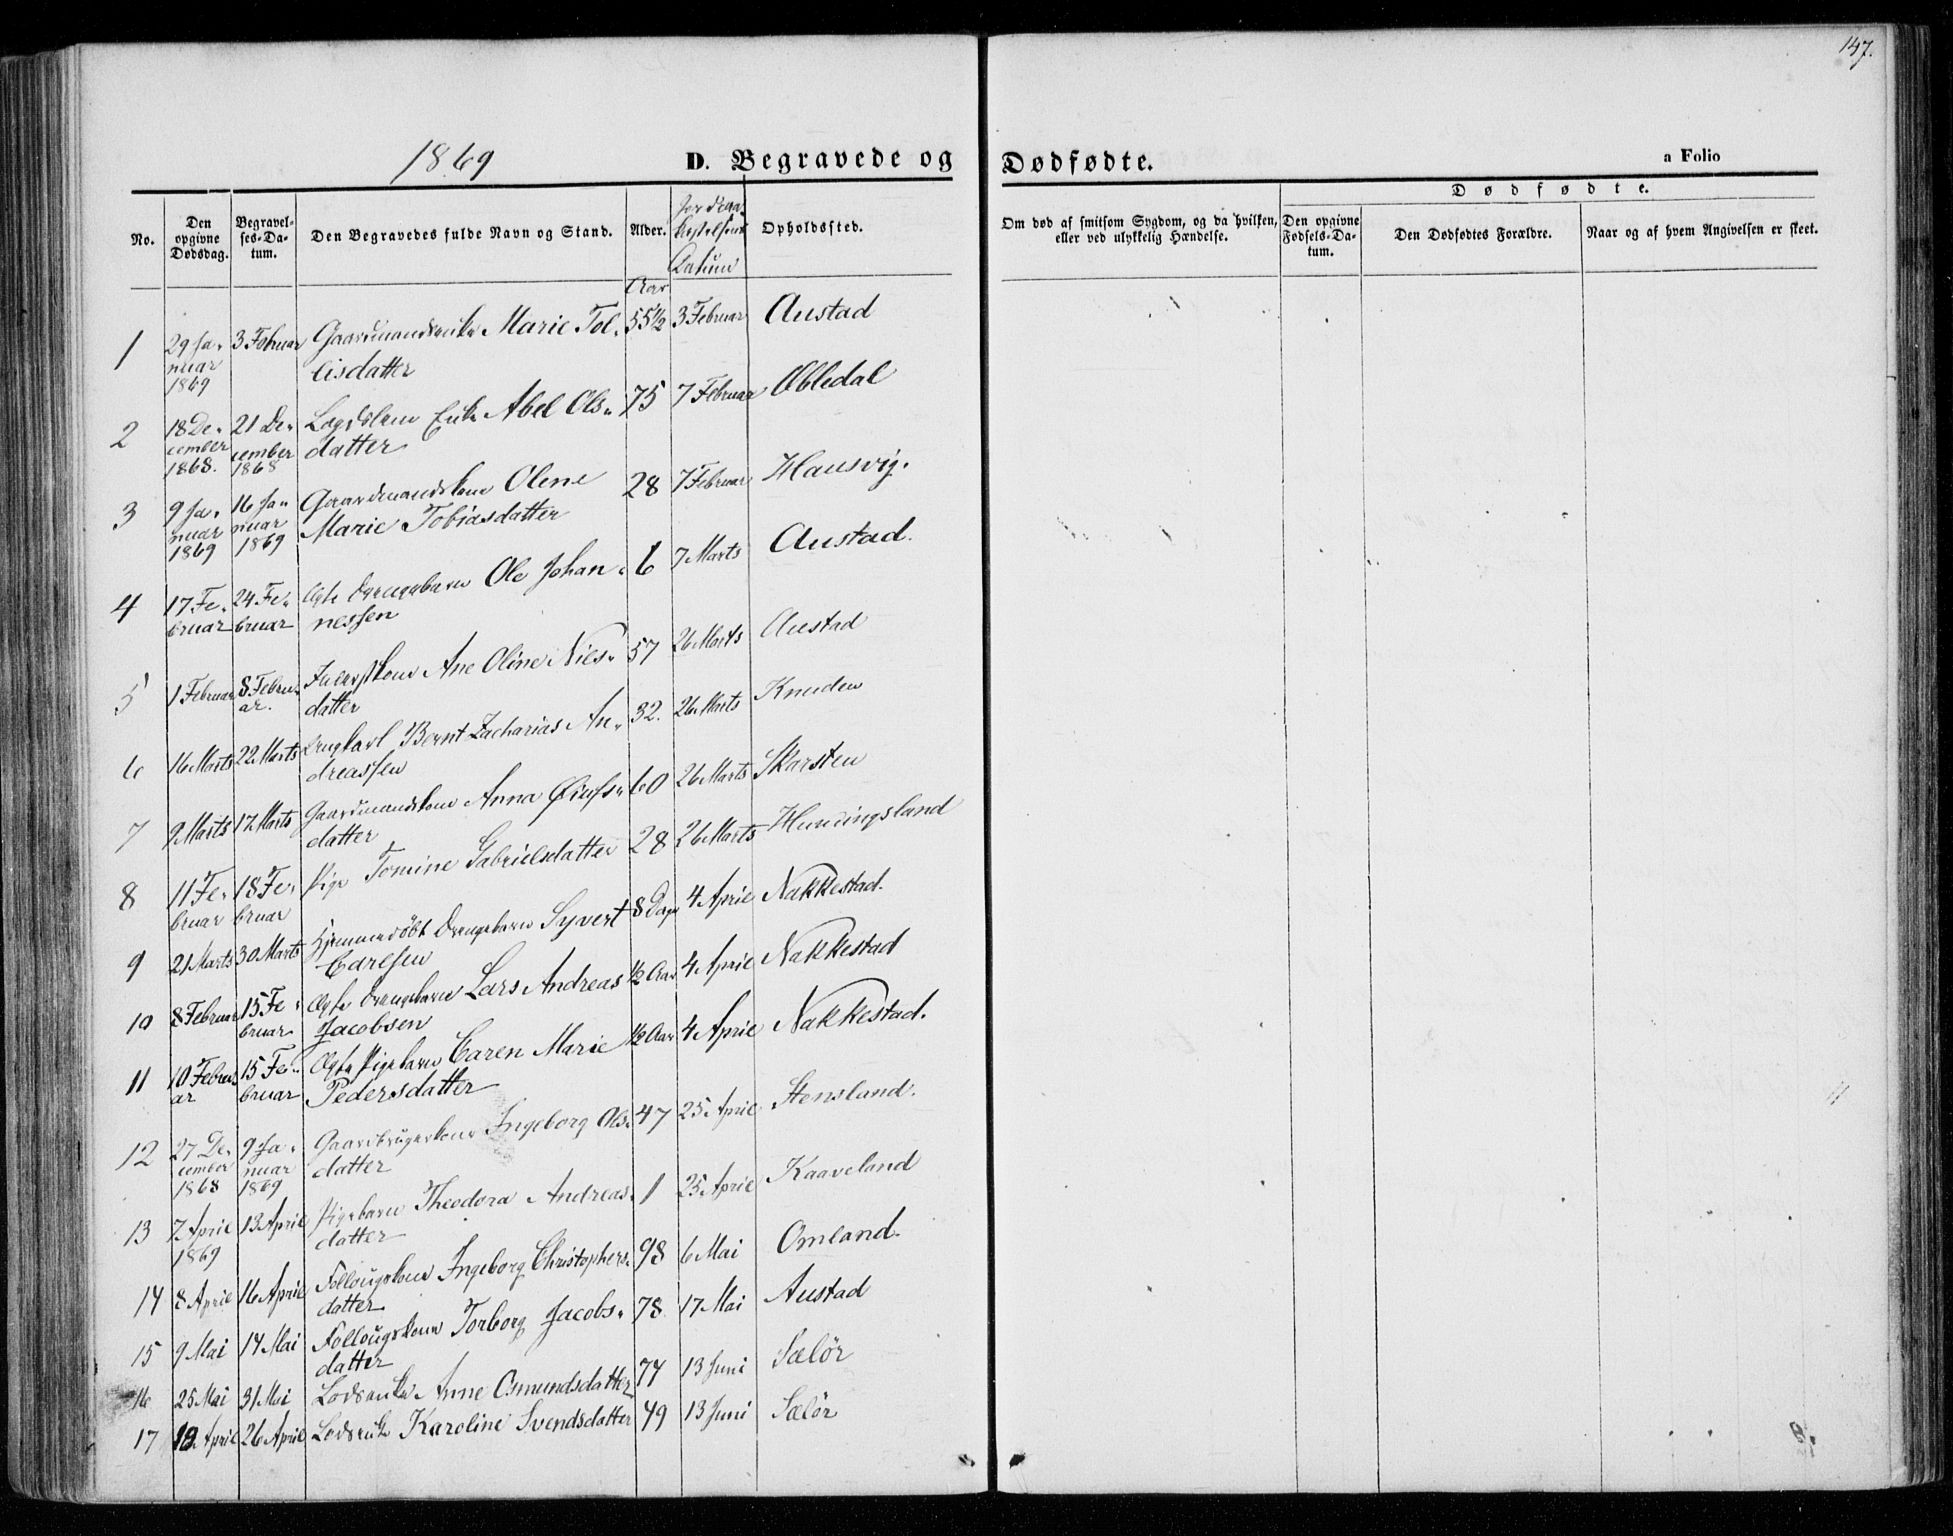 147.
1869 D. Begravede og Dødfødte. a Folio
No. Den opgivne Dødsdag. Begravelses-Datum. Den Begravedes fulde Navn og Stand. Alder. Datum Opholdssted. Om død af smitsom Sygdom, og da hvilken, eller ved ulykkelig Hændelse. Dødfødte. Den opgivne Fødsels-Datum. Den Dødfødtes Forældre. Naar og af hvem Angivelsen er skeet.
Aar
1 29 Januar 1869 3 Februar Gaardmandsenke Marie Tollisdatter 55½ 3 Februar Austad
2 18 December 1868. 21 December 1868 Enke Abel Olsdatter 75 7 Februar Obledal
3 9 Januar 1869 16 Januar 1869 Gaardmandskone Olene Marie Tobiasdatter 28 7 Februar Hausvig.
4 17 Februar 24 Februar Ægte Drengebarn Ole Johannessen 6 7 Marts Austad.
5 1 Februar 8 Februar. Inderstkone Ane Oline Nielsdatter 57 26 Marts Austad
6 16 Marts 22 Marts Ungkarl Bernt Zacharias Andreassen 32. 26 Marts Knuden
7 9 Marts 17 Marts Gaardmandskone Anna Øiufsdatter 60 26 Marts Skarsten
8 11 Februar 18 Februar Pige Tomine Gabrielsdatter 28 26 Marts Huvingsland
9 21 Marts 30 Marts Hjemmedøbt Drengebarn Syvert Carlsen 8 Dage 4 April Nakkestad.
10 8 Februar 15 Februar Ægte Drengebarn Lars Andreas Jacobsen ½ Aar 4 April Nakkestad
11 10 Februar 15 Februar Ægte Pigebarn Caren Marie Pedersdatter ½ Aar 4 April Nakkestad.
12 27 December 1868 9 Januar 1869 Gaardbrugerkone Ingeborg Olsdatter 47 25 April Stensland.
13 7 April 1869 13 April Pigebarn Theodora Andreasdatter 1 25 April Kaaveland
14 8 April 16 April Follougskone Ingeborg Christophersdatter 98 6 Mai Omland.
15 9 Mai 14 Mai Follougskone Torborg Jacobsdatter 78 17 Mai Austad
16 25 Mai 31 Mai Lodsenke Anne Osmundsdatter 74 13 Juni Sælør
17 18 April 26 April Lodsenke Karoline Svendsdatter 49 13 Juni Sælør